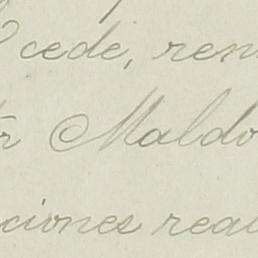 cede, ren
Maldo
ciones real